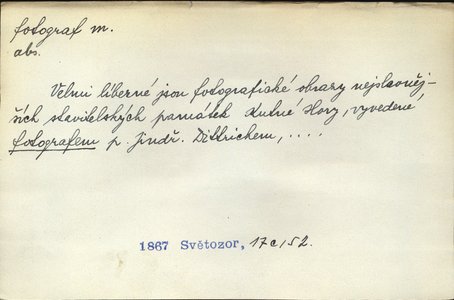 fotograf m.
abs.
Velmi liberné jsou fotografické obrazy nejslavněj-
ších stavitelských památek Kutné Hory, vyvedené
fotografem p. Jindř. Dittrichem, ....
1867 Světozor, 17c/52.